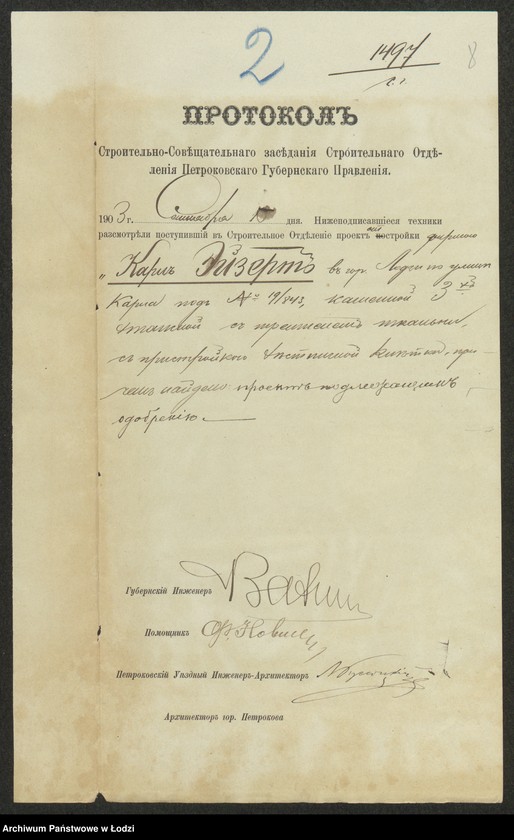 2
1497
8
ПРОТОКОЛЪ
Строительно-Совѣщательнаго засѣданія Стро́ительнаго Отдѣ-
ленія Петроковскаго Губернскаго Правленія.
1903 г. Сентября 10 дня. Нижеподписавшіеся техники
разсмотрѣли поступившій въ Строительное Отдѣленіе проектъ постройки фирмою
„Карлъ Эйзертъ въ гор. Лодзи по улицѣ
Карла подъ № 19/843, каменной 3хъ
этажной
съ пристройкою лѣстничной клѣтки, при-
чемъ найдено проектъ подлежащимъ
одобренію.
Губернскій Инженеръ
Помощникъ
Петроковскій Уѣздный Инженеръ-Архитекторъ
Архитекторъ гор. Петрокова
Archiwum Państwowe w Łodzi